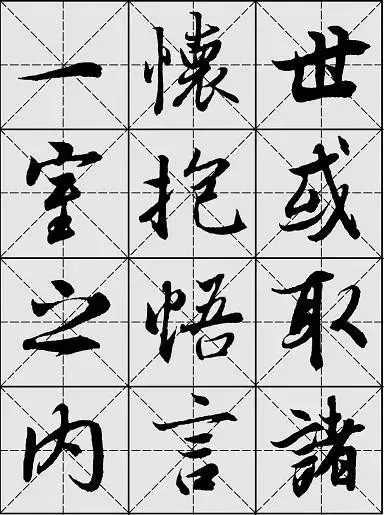 世或取諸
懷抱悟言
一室之內